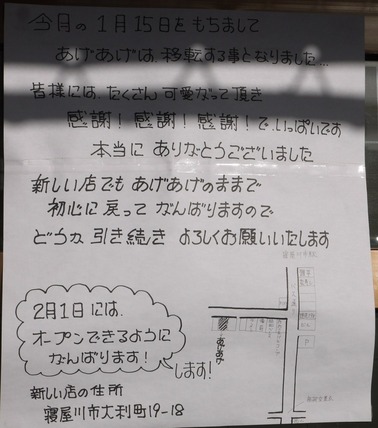 今月の1月15日をもちまして
あげあげは、移転する事となりました…
皆様には たくさん 可愛がって頂き
感謝！感謝！感謝！で、いっぱいです
本当に ありがとうございました
新しい店でも あげあげのままで
初心に戻って がんばりますので
どうか 引き続き よろしくお願いいたします
2月1日には、
オープンできるように
がんばります！
します！
あげあげ
新しい店の住所
寝屋川市大利町19-18